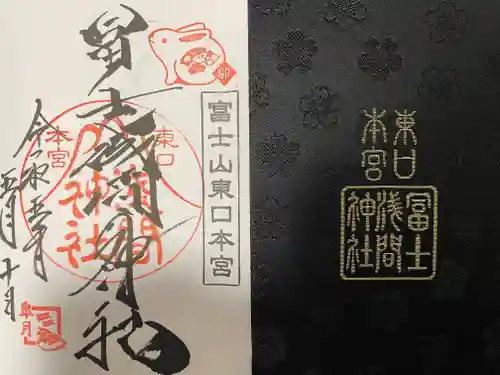 卯
富士山東口本宮
冨士浅間神社
東口
本宮
浅間
神社
令和五年
五月十日
皐月
東口
本宮
冨士
浅間
神社